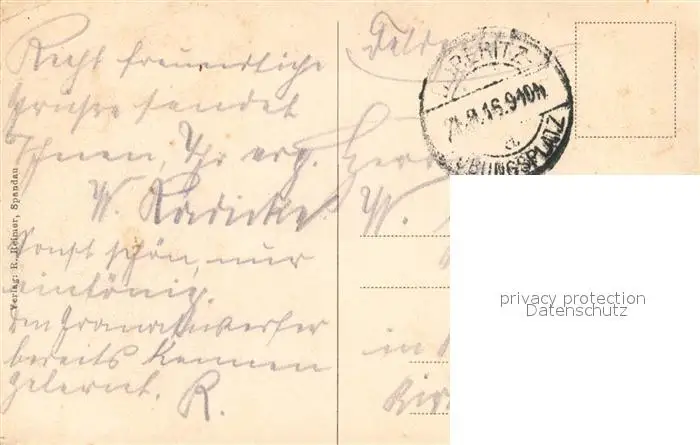 Recht freundliche
Grüsse sendet
Ihnen, Ihr erg.
W. Radicke
Sonst schön, nur
eintönig.
Den Granatwerfer
bereits kennen
gelernt. R.
Verlag: R. Reimer, Spandau
Feldpost
DÖBERITZ
16.9-10N
ÜBUNGSPLATZ
Herrn
W.
in
privacy protection
Datenschutz